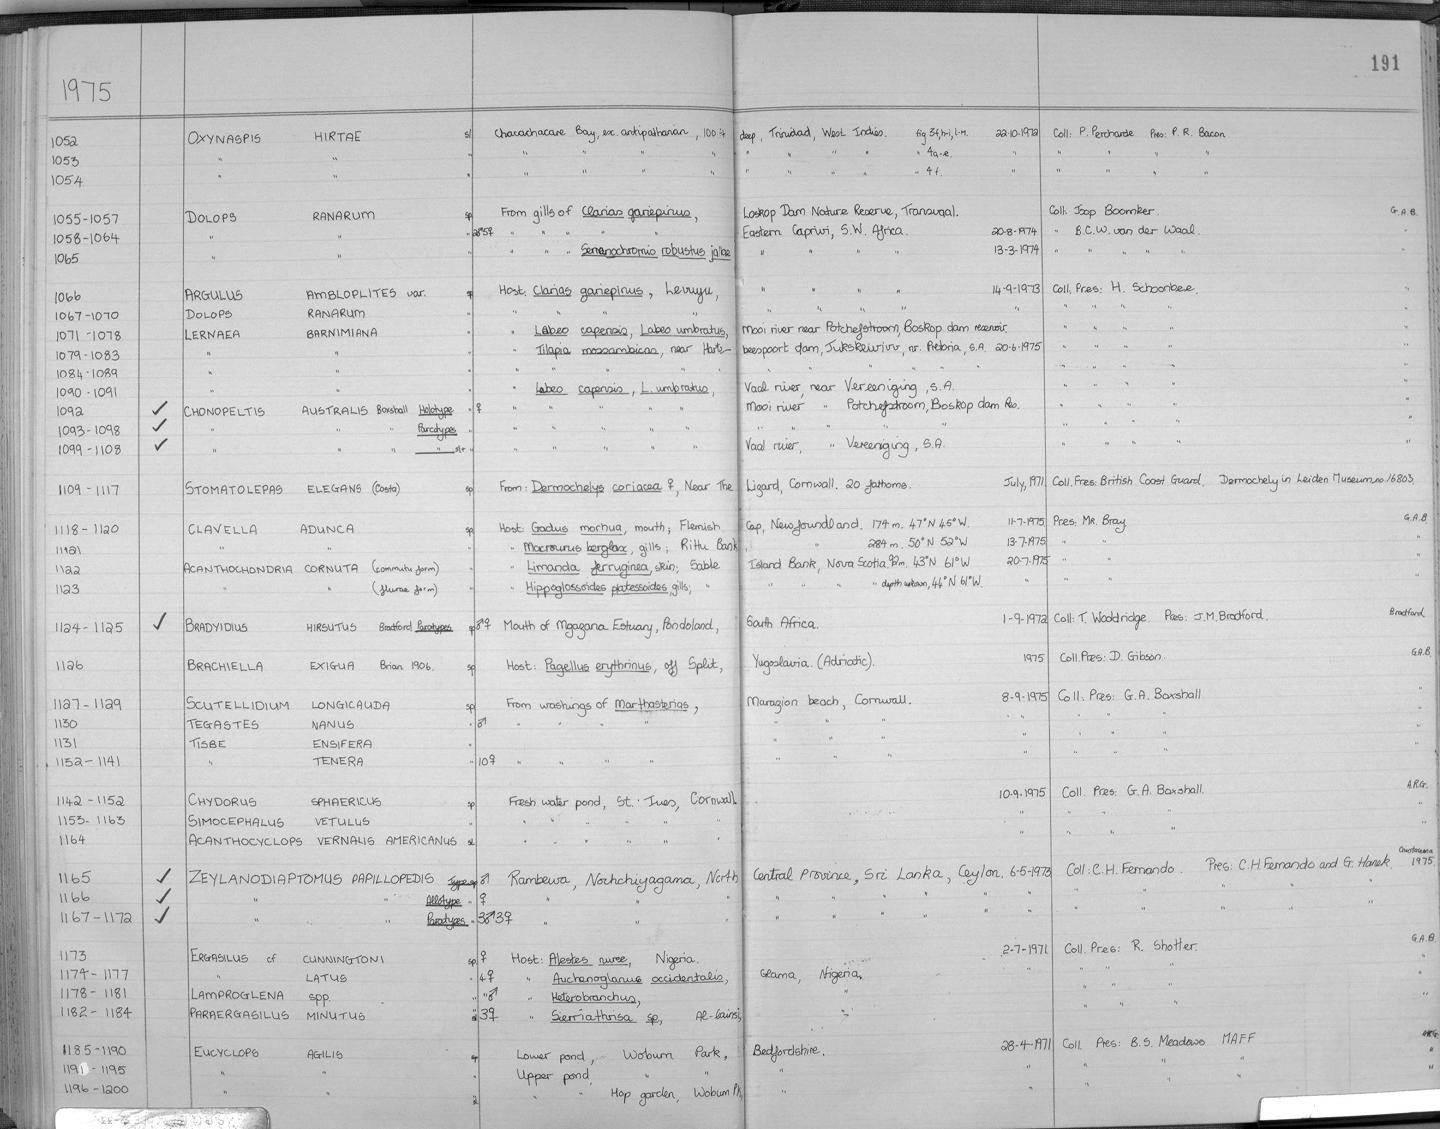 191
1975
1052 OXYNASPIS HIRTAE sl Chacachacare Bay, ex. antipatharian, 100 ft deep, Trinidad, West Indies. fig 3f,h-i,l-m. 22.10.1972 Coll: P. Percharde Pres: P. R. Bacon
1053 " " " " " " " " " " " " 4a-e. " " " " "
1054 " " " " " " " " " " " " 4f. " " " " "
1055-1057 DOLOPS RANARUM sp From gills of Clarias gariepinus, Loskop Dam Nature Reserve, Transvaal. Coll: Joop Boomker. G.A.B.
1058-1064 " " " " " " " Eastern Capriwi, S.W. Africa. 20-8-1974 " B.C.W. van der Waal. "
1065 " " " " " " Serranochromis robustus jallae " " " " 13-3-1974 " " " " "
1066 ARGULUS AMBLOPLITES var. Host: Clarias gariepinus, " " " 14-9-1973 Coll. Pres: H. Schoonbee. "
1067-1070 DOLOPS RANARUM " " " " " " " " " " "
1071-1078 LERNAEA BARNIMIANA " Labeo capensis, Labeo umbratus, Mooi river near Potchefstroom, Boskop dam reservoir. " " "
1079-1083 " " " Tilapia mossambicas, near Harte- beespoort dam, Jukskeirivir, nr. Pretoria, S.A. 20-6-1975 " " "
1084-1089 " " " " " " " " " " " " "
1090-1091 " " " Labeo capensis, L. umbratus, Vaal river, near Vereeniging, S.A. " " "
1092 ✓ CHONOPELTIS AUSTRALIS Boxshall Holotype " ♀ " " " " " Mooi river " Potchefstroom, Boskop dam Res. " " "
1093-1098 ✓ " " " Paratypes " " " " " " " " " " " " "
1099-1108 ✓ " " " " " " " " " Vaal river, " Vereeniging, S.A. " " "
1109-1117 STOMATOLEPAS ELEGANS (Costa) sp From: Dermochelys coriacea ♀, Near The Lizard, Cornwall. 20 fathoms. July, 1971 Coll. Pres: British Coast Guard, Dermochely in Leiden Museum no 16803.
1118-1120 CLAVELLA ADUNCA sp Host: Gadus morhua, mouth; Flemish Cap, Newfoundland. 174 m. 47°N 45°W. 11-7-1975 Pres: Mr. Bray G.A.B.
1121 " " " Macrourus berglax, gills; Rittu Bank, " 284 m. 50°N 52°W 13-7-1975 " "
1122 ACANTHOCHONDRIA CORNUTA (commuta form) " Limanda ferruginea, skin; Sable Island Bank, Nova Scotia. 92m. 43°N 61°W 20-7-1975 " "
1123 " " (flurae form) " Hippoglossoides platessoides, gills; " " " depth unknown, 44°N 61°W. " " "
1124-1125 ✓ BRADYIDIUS HIRSUTUS Bradford Paratypes sp ♂♀ Mouth of Mgazana Estuary, Pondoland, South Africa. 1-9-1972 Coll: T. Wooldridge. Pres: J.M. Bradford. Bradford
1126 BRACHIELLA EXIGUA Brian 1906. sp Host: Pagellus erythrinus, off Split, Yugoslavia. (Adriatic). 1975 Coll. Pres: D. Gibson. G.A.B.
1127-1129 SCUTELLIDIUM LONGICAUDA sp From washings of Marthasterias, Marazion beach, Cornwall. 8-9-1975 Coll. Pres: G.A. Boxshall
1130 TEGASTES NANUS " ♂ " " " " " " " " " "
1131 TISBE ENSIFERA " " " " " " " " " " "
1152-1141 " TENERA " 10♀ " " " " " " " " " "
1142-1152 CHYDORUS SPHAERICUS sp Fresh water pond, St. Ives, Cornwall. 10-9-1975 Coll. Pres: G.A. Boxshall. A.R.G.
1153-1163 SIMOCEPHALUS VETULUS " " " " " " " " "
1164 ACANTHOCYCLOPS VERNALIS AMERICANUS sl " " " " " " " "
1165 ✓ ZEYLANODIAPTOMUS PAPILLOPEDIS Type sp ♂ Rambewa, Nochchiyagama, North Central Province, Sri Lanka, Ceylon. 6-5-1973 Coll: C.H. Fernando. Pres: C.H. Fernando and G. Hanek. Crustaceana 1975.
1166 ✓ " " Allotype " ♀ " " " " " " " " " " " "
1167-1172 ✓ " " Paratypes " 3♂3♀ " " " " " " " " " " " "
1173 ERGASILUS cf CUNNINGTONI sp ♀ Host: Alestes nurse, Nigeria. 2-7-1971 Coll. Pres: R. Shotter. G.A.B.
1174-1177 " LATUS " 4♀ " Auchenoglanus occidentalis, Nigeria. " " " "
1178-1181 LAMPROGLENA spp. " Heterobranchus, " " " " "
1182-1184 PARAERGASILUS MINUTUS 3♀ " Sierriathrisa sp, " " " " "
1185-1190 EUCYCLOPS AGILIS sp Lower pond, Woburn Park, Bedfordshire. 28-4-1971 Coll. Pres: B.S. Meadows MAFF ARG
1191-1195 " " " Upper pond, " " " " " "
1196-1200 " " " " Hop garden, Woburn Pk, " " " "